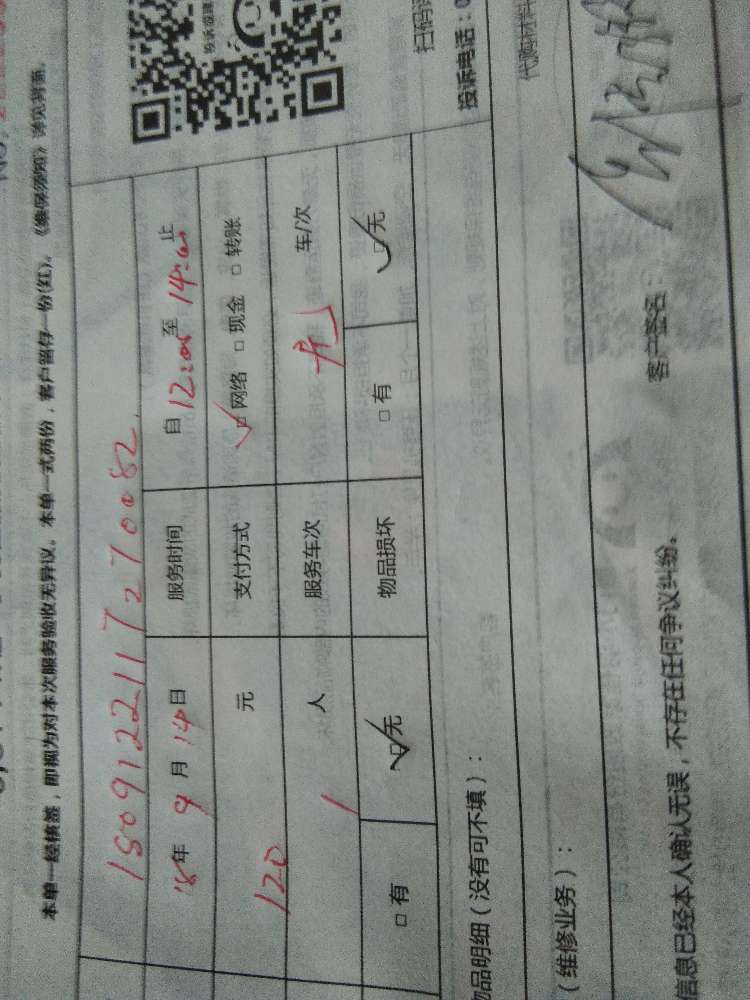 扫码
投诉电话：0
本单一经核签，即视为对本次服务验收无异议。本单一式两份，客户留存一份(红)。《维保须知》请见背面。
1809122117270082
18年9月14日 服务时间 自12:00至14:00止
120元 支付方式 □网络 □现金 □转账
1人 服务车次 车/次
□有 □无 物品损坏 □有 □无
物品明细（没有可不填）：
代购材料
（维修业务）：
信息已经本人确认无误，不存在任何争议纠纷。 客户签名：